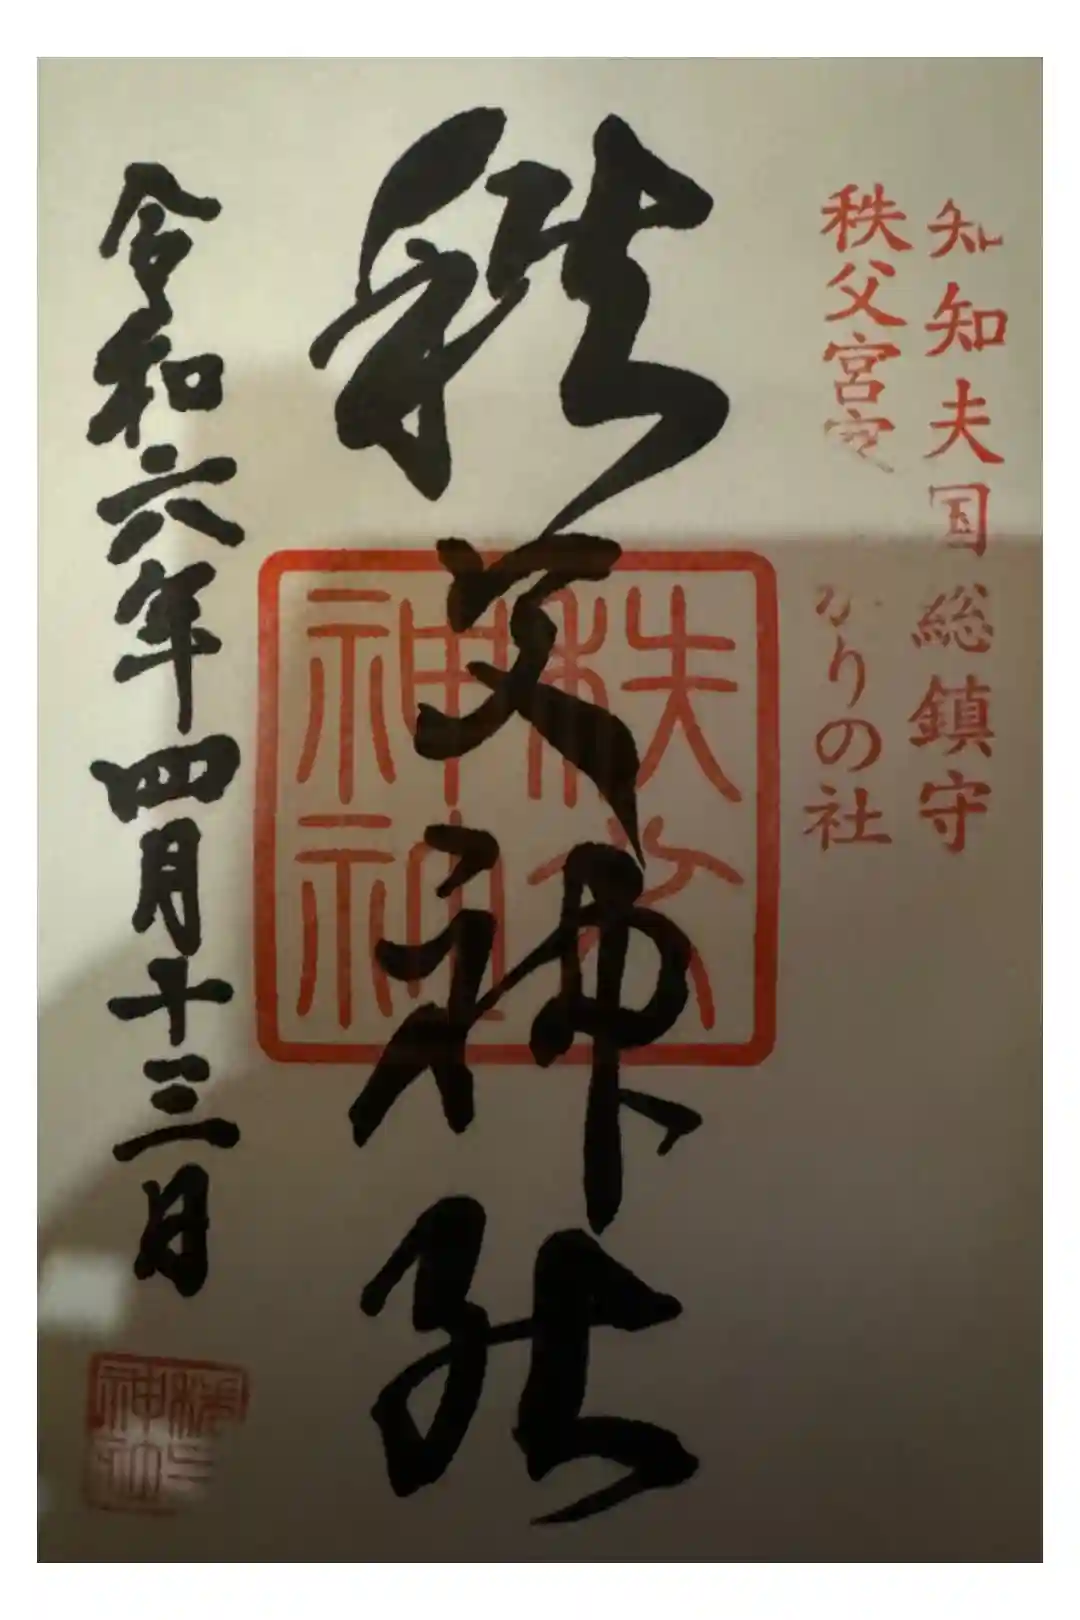 知知夫国総鎮守
秩父宮家
かりの社
秩父神社
秩父神社
令和六年四月十三日